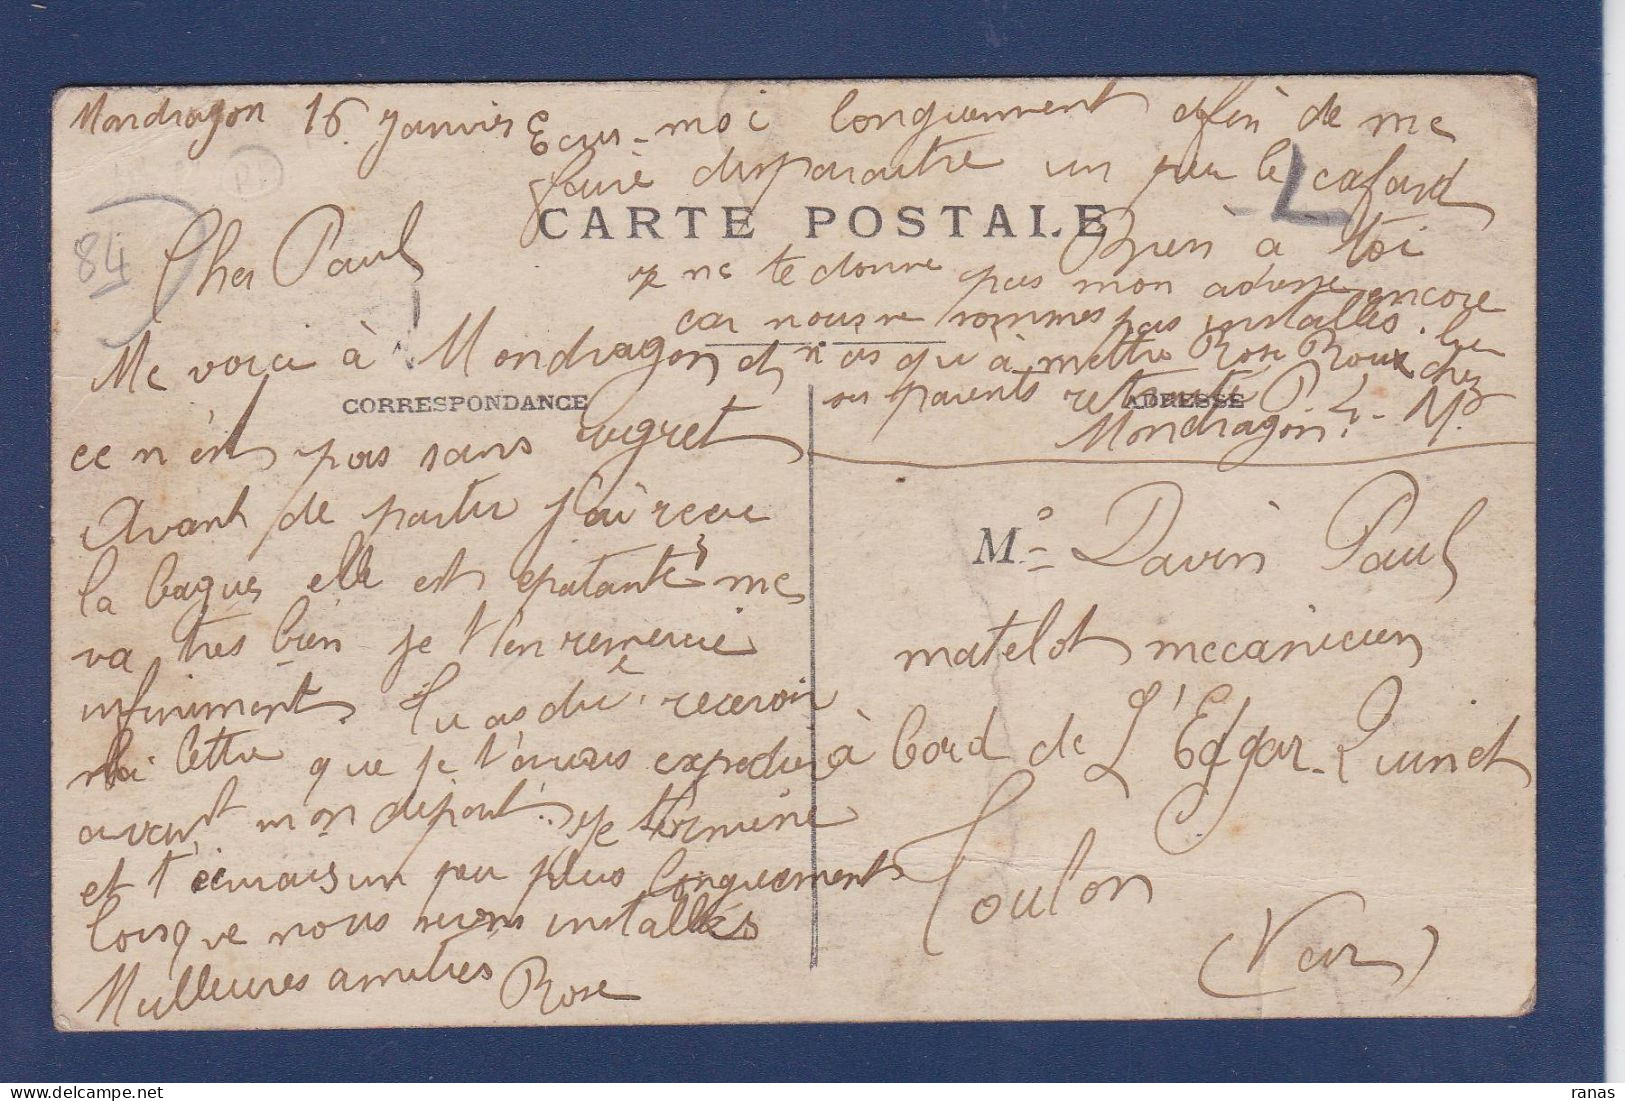 Mondragon 16 Janvier
Cher Paul
CARTE POSTALE
CORRESPONDANCE
ADRESSE
Me voici à Mondragon
ce n'est pas sans regret
Avant de partir j'ai reçu
la bague elle est epatante me
va très bien je t'en remercie
infiniment Tu as dû recevoir
lettre que je t'avais expediée
avant mon départ. Je termine
et t'ecrirais un peu plus longuement
lorsque nous serons installés
Meilleures amitiés Rose
Ecris-moi longuement afin de me
faire disparaitre un peu le cafard
Bien à toi
Je ne te donne pas mon adresse encore
car nous ne sommes pas installés.
qu'à mettre Rose Roux chez
parents retraité P.L.M.
Mondragon
Mr Davin Paul
matelot mecanicien
à bord de L'Edgar-Quinet
Toulon
(Var)
84
ranas